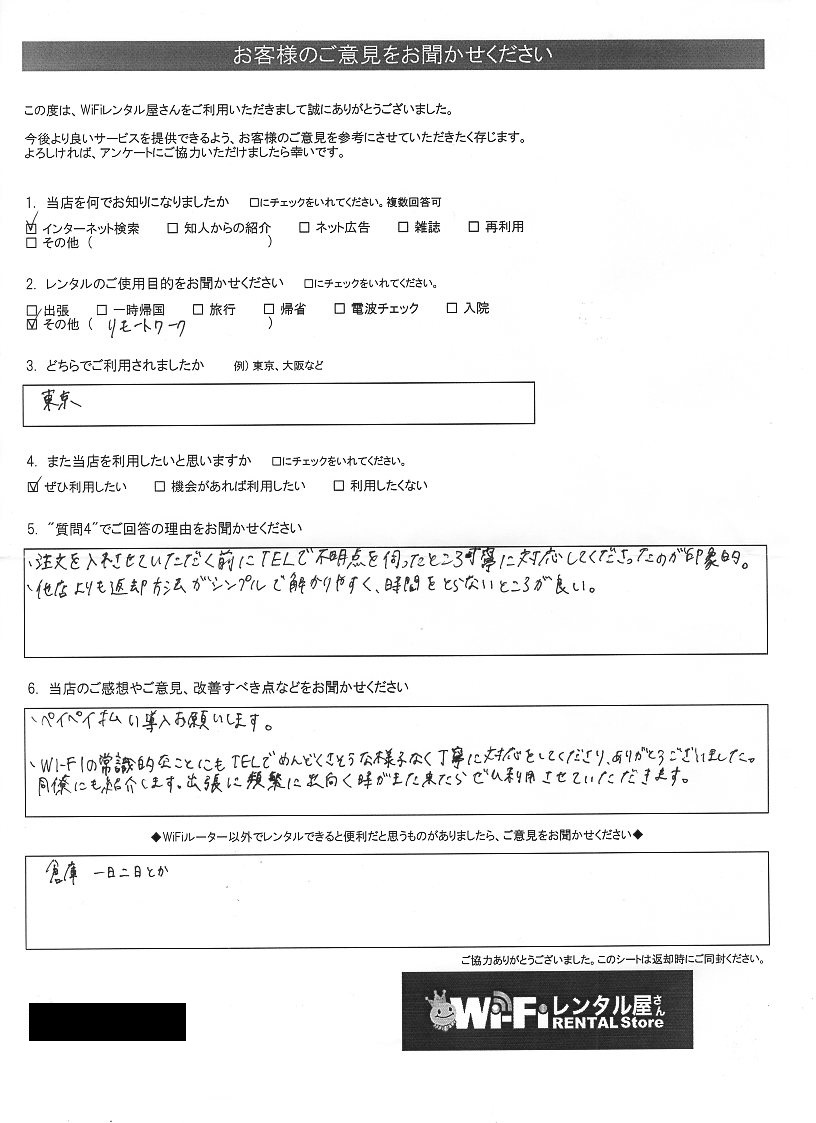 お客様のご意見をお聞かせください
この度は、WiFiレンタル屋さんをご利用いただきまして誠にありがとうございました。
今後より良いサービスを提供できるよう、お客様のご意見を参考にさせていただきたく存じます。
よろしければ、アンケートにご協力いただけましたら幸いです。
1. 当店を何でお知りになりましたか □にチェックをいれてください。複数回答可
☑ インターネット検索 □ 知人からの紹介 □ ネット広告 □ 雑誌 □ 再利用
□ その他 ( )
2. レンタルのご使用目的をお聞かせください □にチェックをいれてください。
□ 出張 □ 一時帰国 □ 旅行 □ 帰省 □ 電波チェック □ 入院
☑ その他 ( リモートワーク )
3. どちらでご利用されましたか 例) 東京、大阪など
東京
4. また当店を利用したいと思いますか □にチェックをいれてください。
☑ ぜひ利用したい □ 機会があれば利用したい □ 利用したくない
5. "質問4"でご回答の理由をお聞かせください
、注文を入れさせていただく前にTELで不明点を伺ったところ丁寧に対応してくださったのが印象的。
、他店よりも返却方法がシンプルで解かりやすく、時間をとらないところが良い。
6. 当店のご感想やご意見、改善すべき点などをお聞かせください
、ペイペイ払い導入お願いします。
、Wi-Fiの常識的なことにもTELでめんどくさそうな様子なく丁寧に対応をしてくださり、ありがとうございました。
同僚にも紹介します。出張に頻繁に出向く時がまた来たらぜひ利用させていただきます。
◆WiFiルーター以外でレンタルできると便利だと思うものがありましたら、ご意見をお聞かせください◆
倉庫 一日二日とか
ご協力ありがとうございました。このシートは返却時にご同封ください。
Wi-Fiレンタル屋さん
RENTAL Store